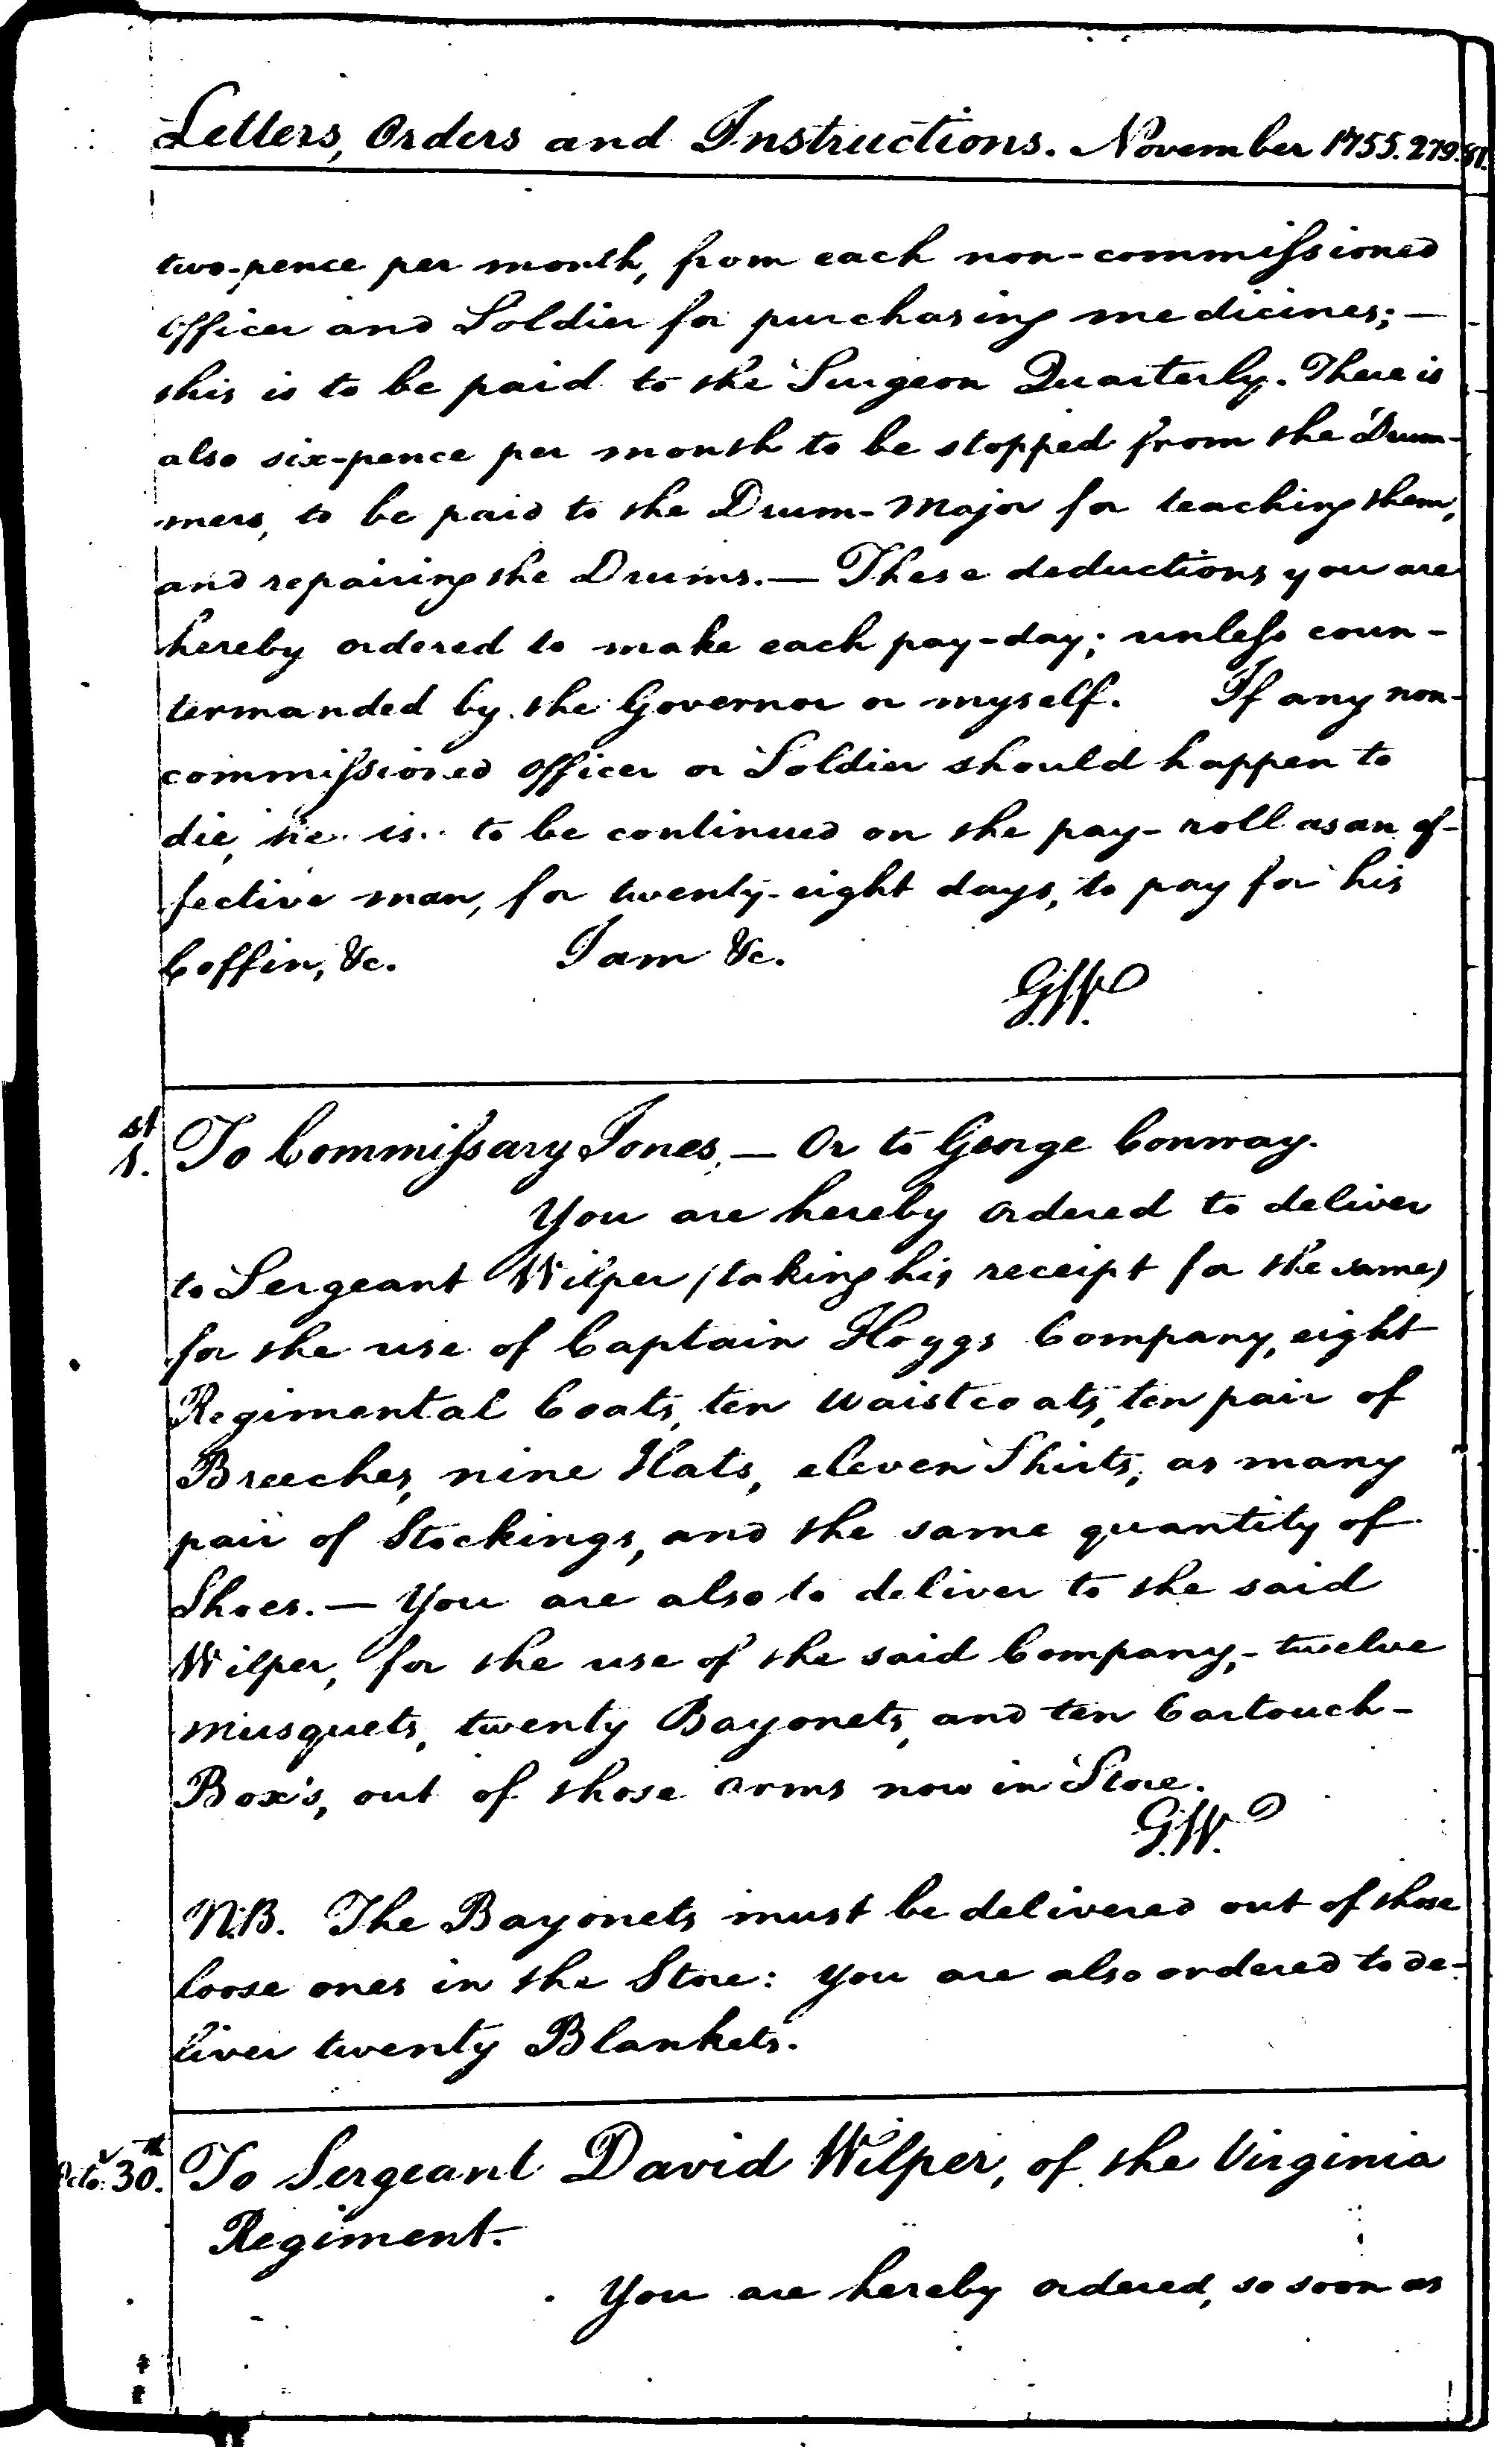 Letters, Orders and Instructions. November 1755. 279.
two-pence per month, from each non-commissioned
Officer and Soldier for purchasing medicines; —
this is to be paid to the Surgeon Quarterly. There is
also six-pence per month to be stopped from the Drum-
mers, to be paid to the Drum-Major for teaching them,
and repairing the Drums. — These deductions you are
hereby ordered to make each pay-day; unless coun-
termanded by the Governor or myself. If any non-
commissioned officer or Soldier should happen to
die, he is to be continued on the pay-roll as an ef-
fective man, for twenty-eight days, to pay for his
Coffin, &c. I am &c.
G.W.
1st. To Commissary Jones, — Or to George Conway.
You are hereby ordered to deliver
to Sergeant Wilper (taking his receipt for the same)
for the use of Captain Hoggs Company, eight
Regimental Coats, ten waistcoats, ten pair of
Breeches, nine Hats, eleven Shirts, as many
pair of Stockings, and the same quantity of
Shoes. — You are also to deliver to the said
Wilper, for the use of the said Company, - twelve
musquets, twenty Bayonets, and ten Cartouch-
Box's, out of those arms now in Store.
G.W.
N.B. The Bayonets must be delivered out of those
loose ones in the Store: you are also ordered to de-
liver twenty Blankets.
Octo. 30th. To Sergeant David Wilper, of the Virginia
Regiment.
You are hereby ordered, so soon as